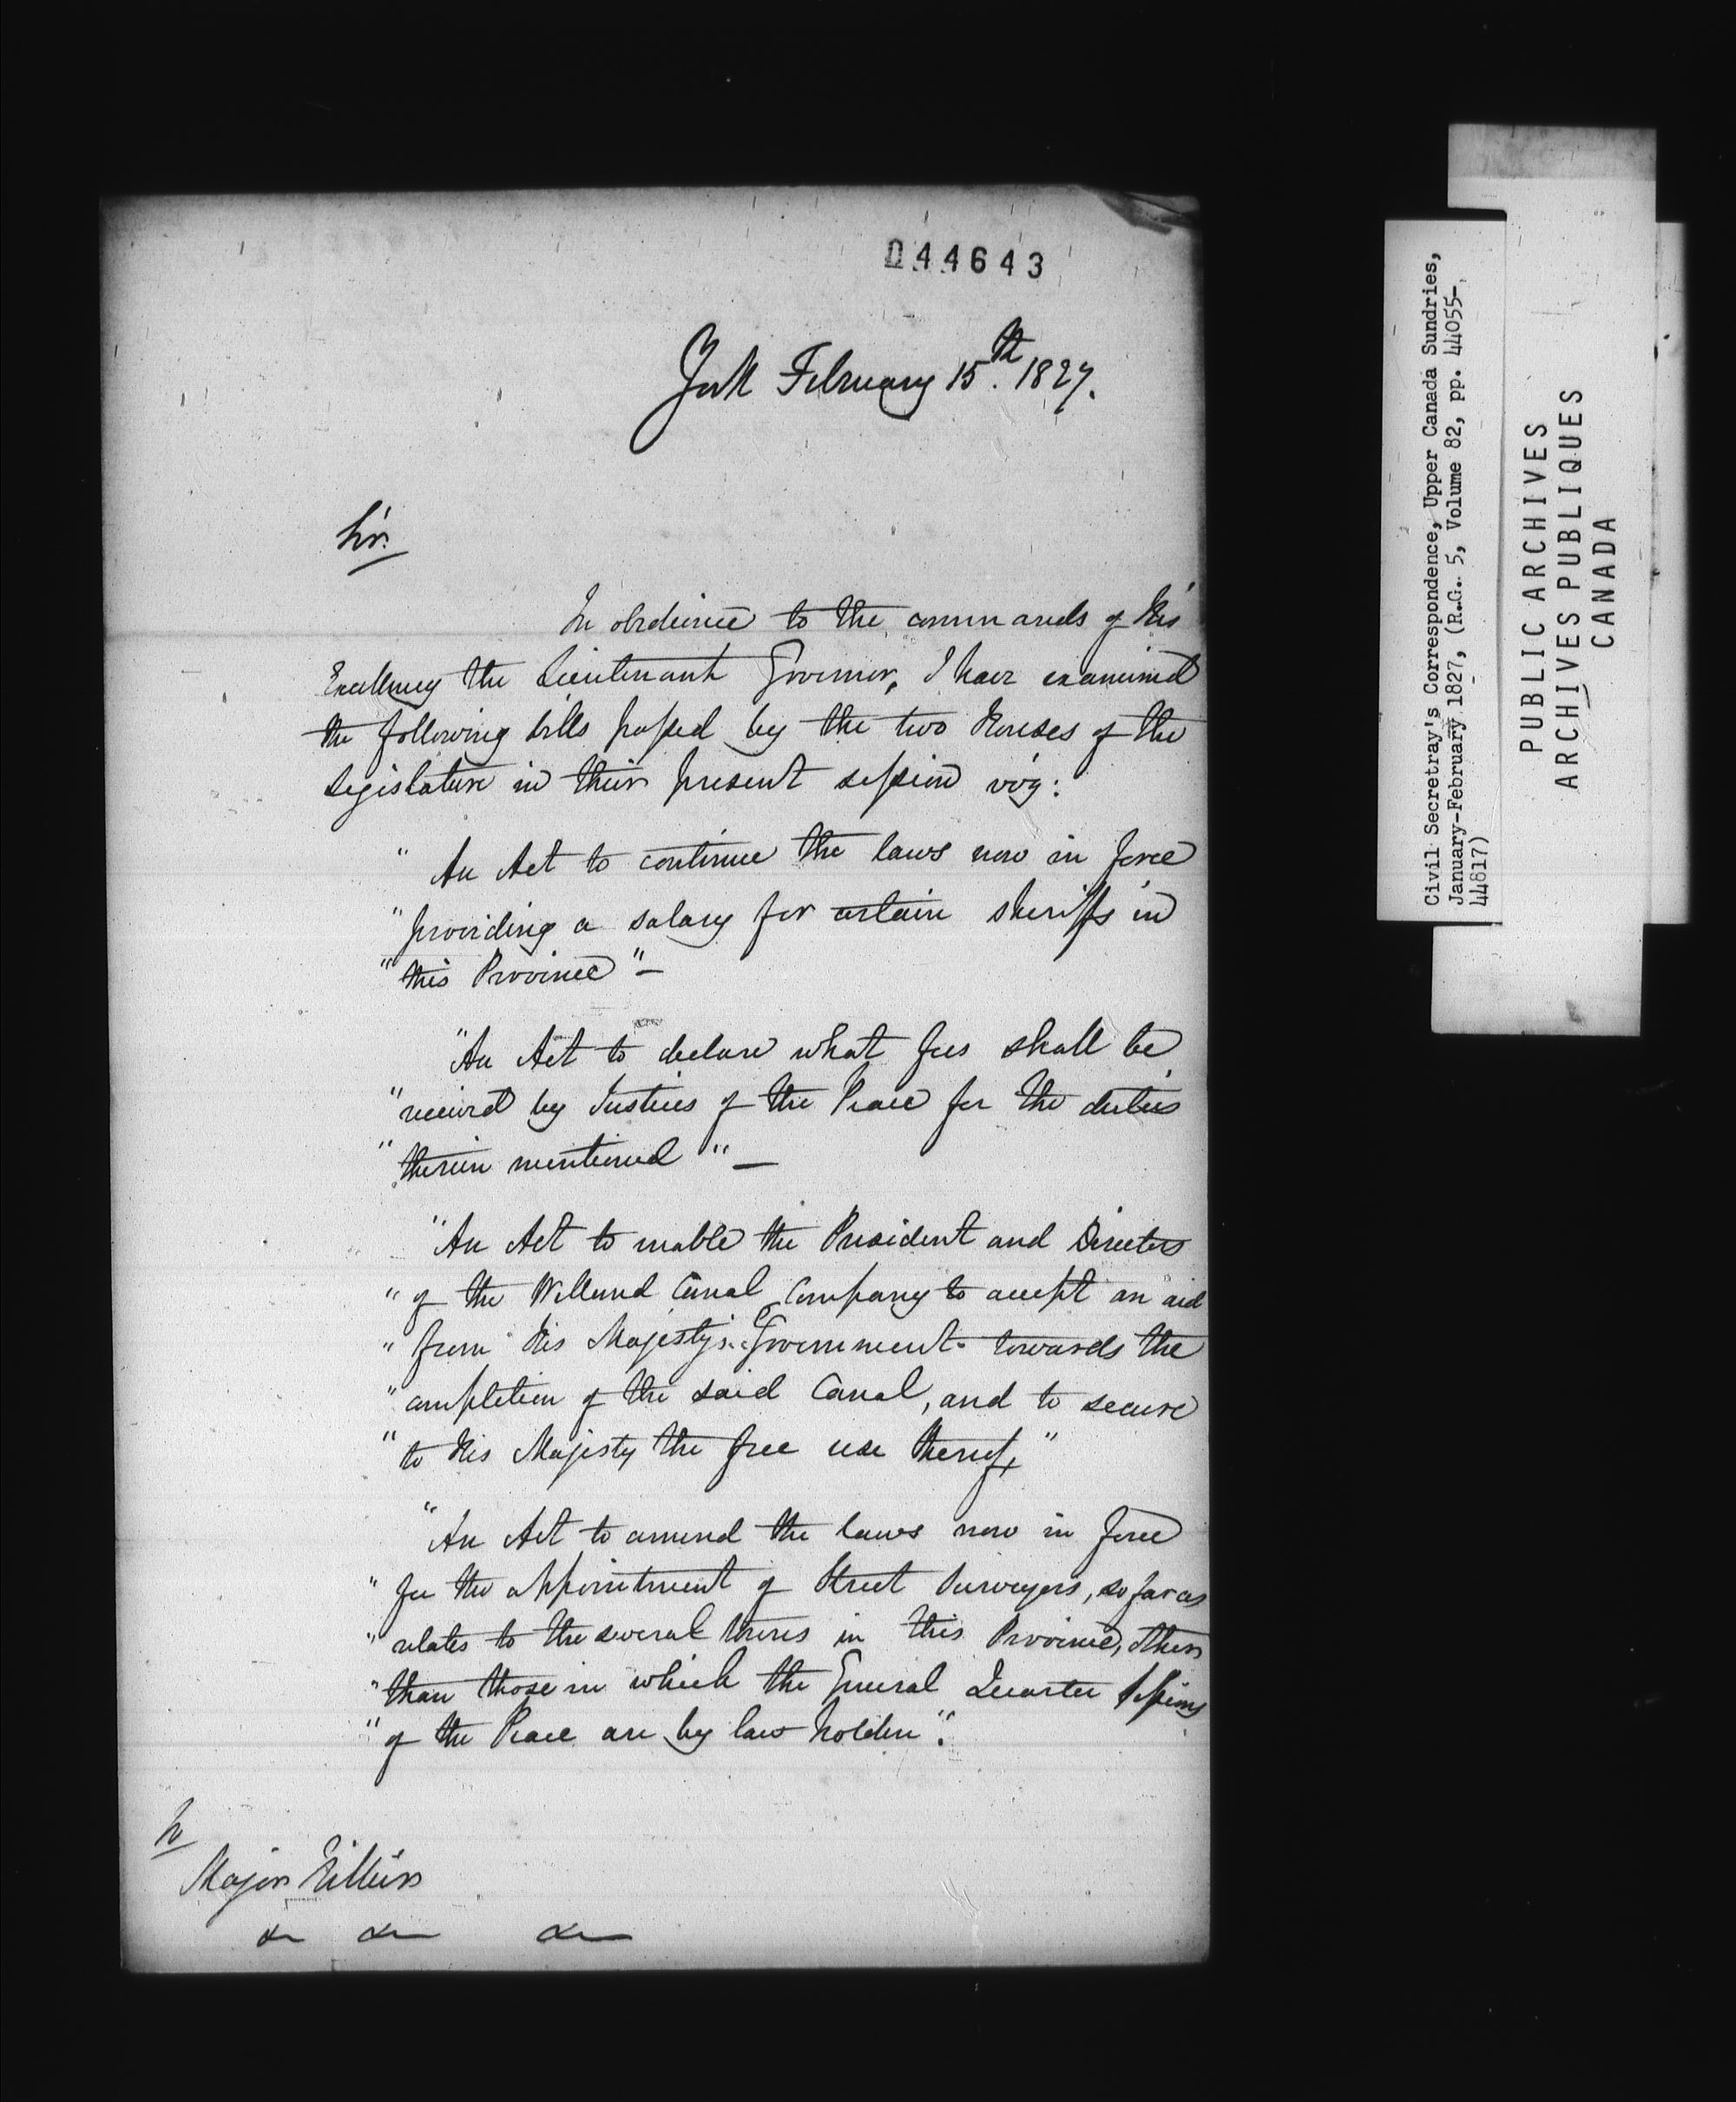 044643
York February 15th. 1827.
Sir.
In obedience to the commands of His
Excellency the Lieutenant Governor, I have examined
the following bills passed by the two Houses of the
Legislature in their present session viz:
" An Act to continue the laws now in force
" providing a salary for certain sheriffs in
" this Province" —
"An Act to declare what fees shall be
" received by Justices of the Peace for the duties
" therein mentioned " —
"An Act to enable the President and Directors
" of the Welland Canal Company to accept an aid
" from His Majesty's Government towards the
" completion of the said Canal, and to secure
" to His Majesty the free use thereof,"
"An Act to amend the laws now in force
" for the appointment of Street Surveyors, so far as
" relates to the several towns in this Province, other
" than those in which the General Quarter Sessions
" of the Peace are by law holden".
To
Major Hillier
&c &c &c
Civil Secretray's Correspondence, Upper Canada Sundries,
January-February 1827, (R.G. 5, Volume 82, pp. 44055-
44817)
PUBLIC ARCHIVES
ARCHIVES PUBLIQUES
CANADA